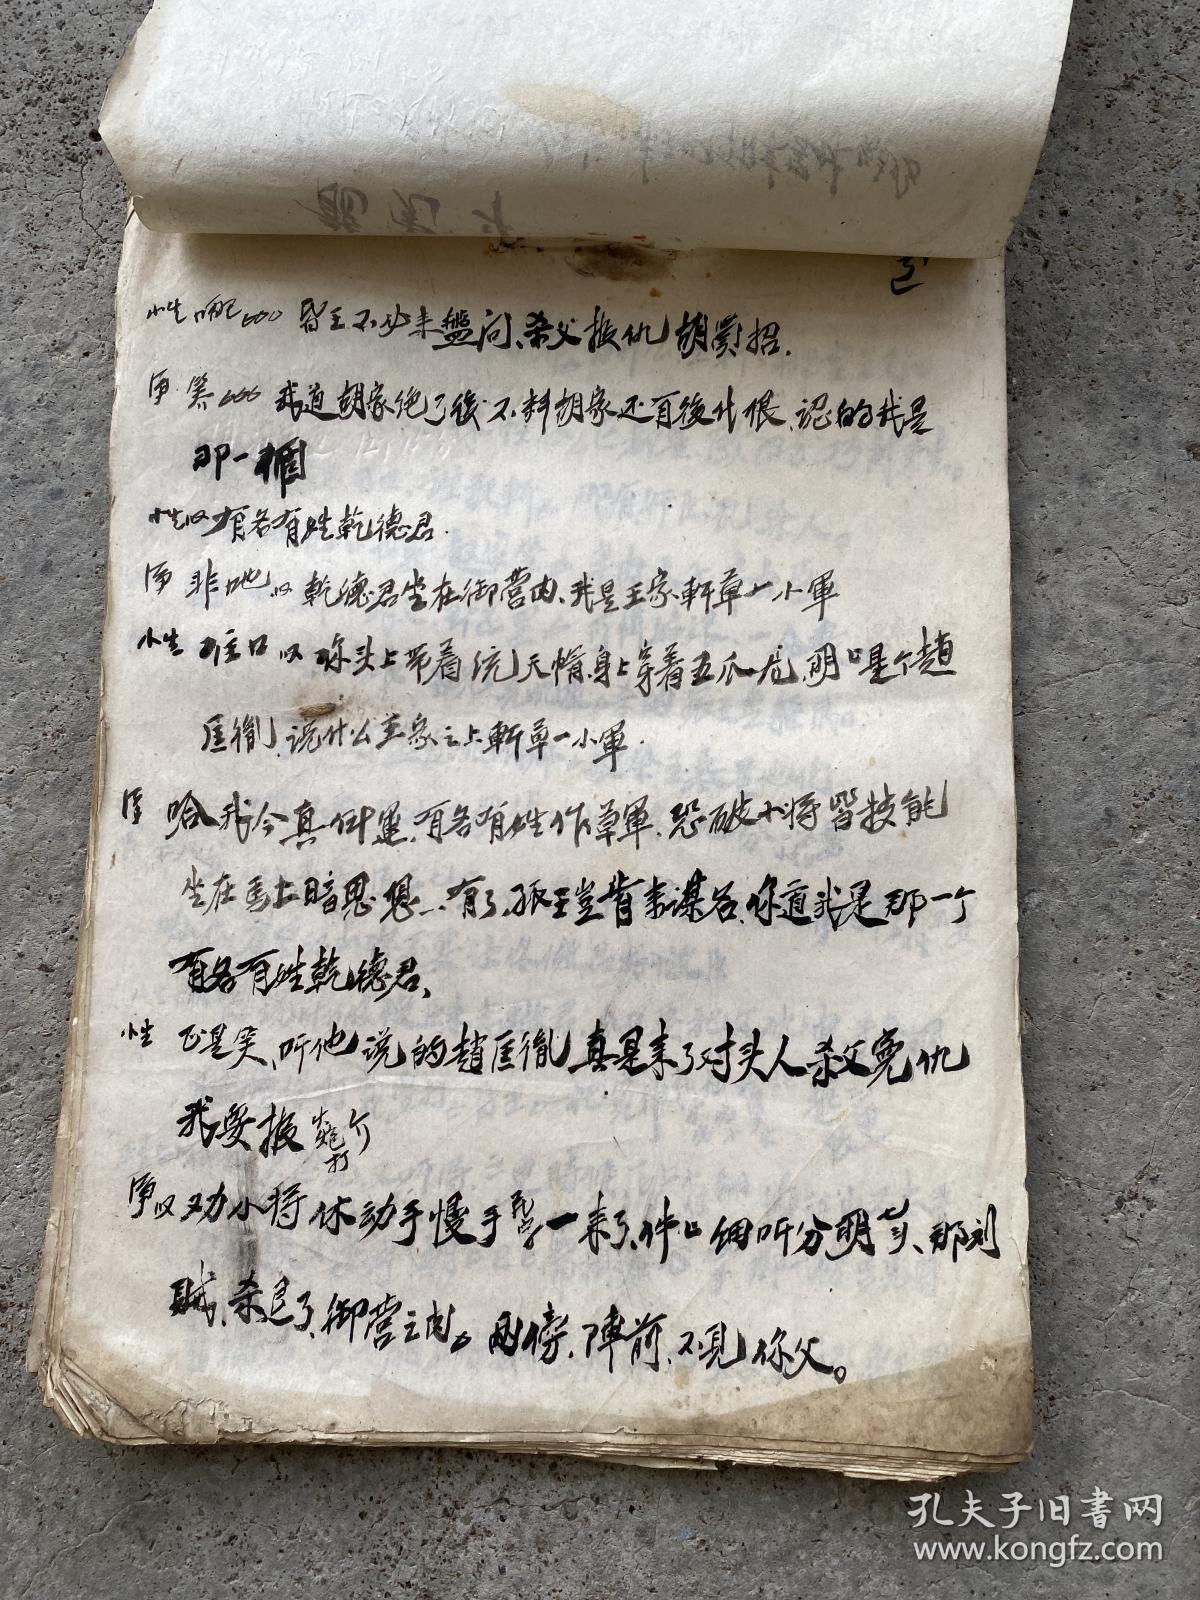 小生 昏王不必来盤问、杀父报仇胡賓招.
笑 我道胡家绝了後不料胡家还有後代根、認的我是
那一個
小生 有名有姓乾德君.
非也 乾德君坐在御营内、我是王家軒草一小軍
小生 住口 你头上带着统天帽、身上穿着五瓜龙、明 是个趙
匡胤、说什么王家之上軒草一小軍.
哈 我今真 有名有姓作草軍、恐破小将皆技能
坐在馬上暗思想 有了、孤王豈肯来谋名、你道我是那一个
有名有姓乾德君、
小生 正是笑、听他说的趙匡胤真是来了对头人杀父冤仇
我要报
劝小将休动手慢手 一来了、件 细听分明 、那刘
贼、杀 了、御营之内。两傍、陣前、不見你父。
孔夫子旧书网
www.kongfz.com